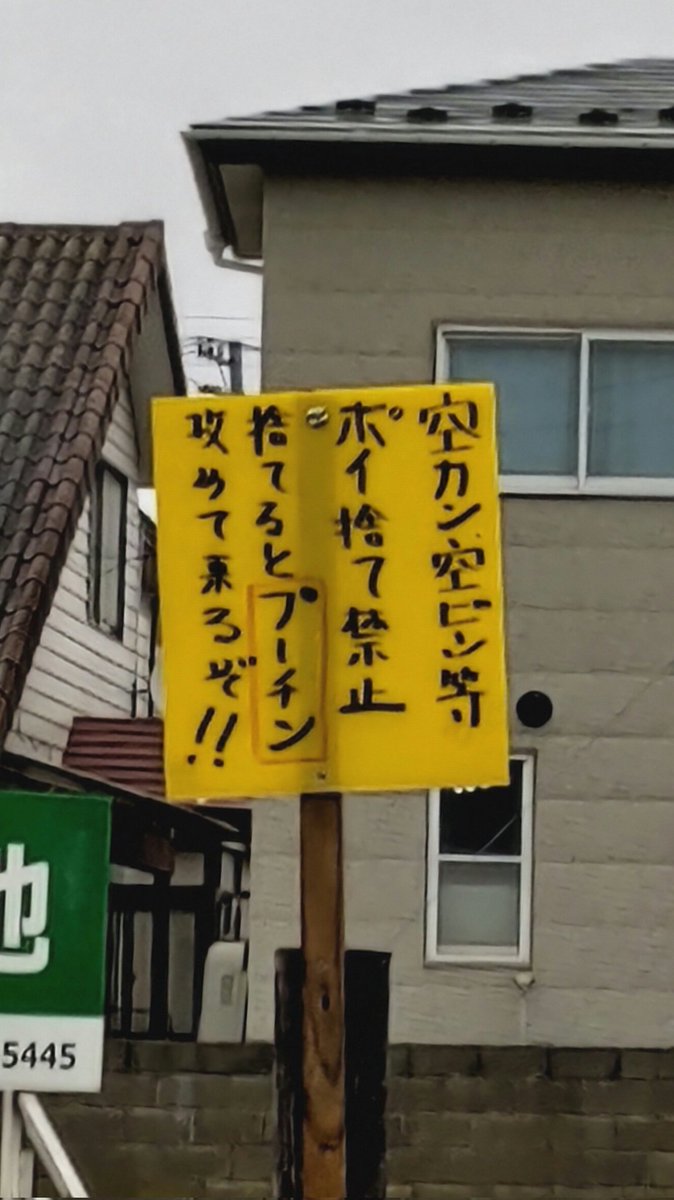 空カン、空ビン等
ポイ捨て禁止
捨てるとプーチン
攻めて来るぞ!!
地
5445